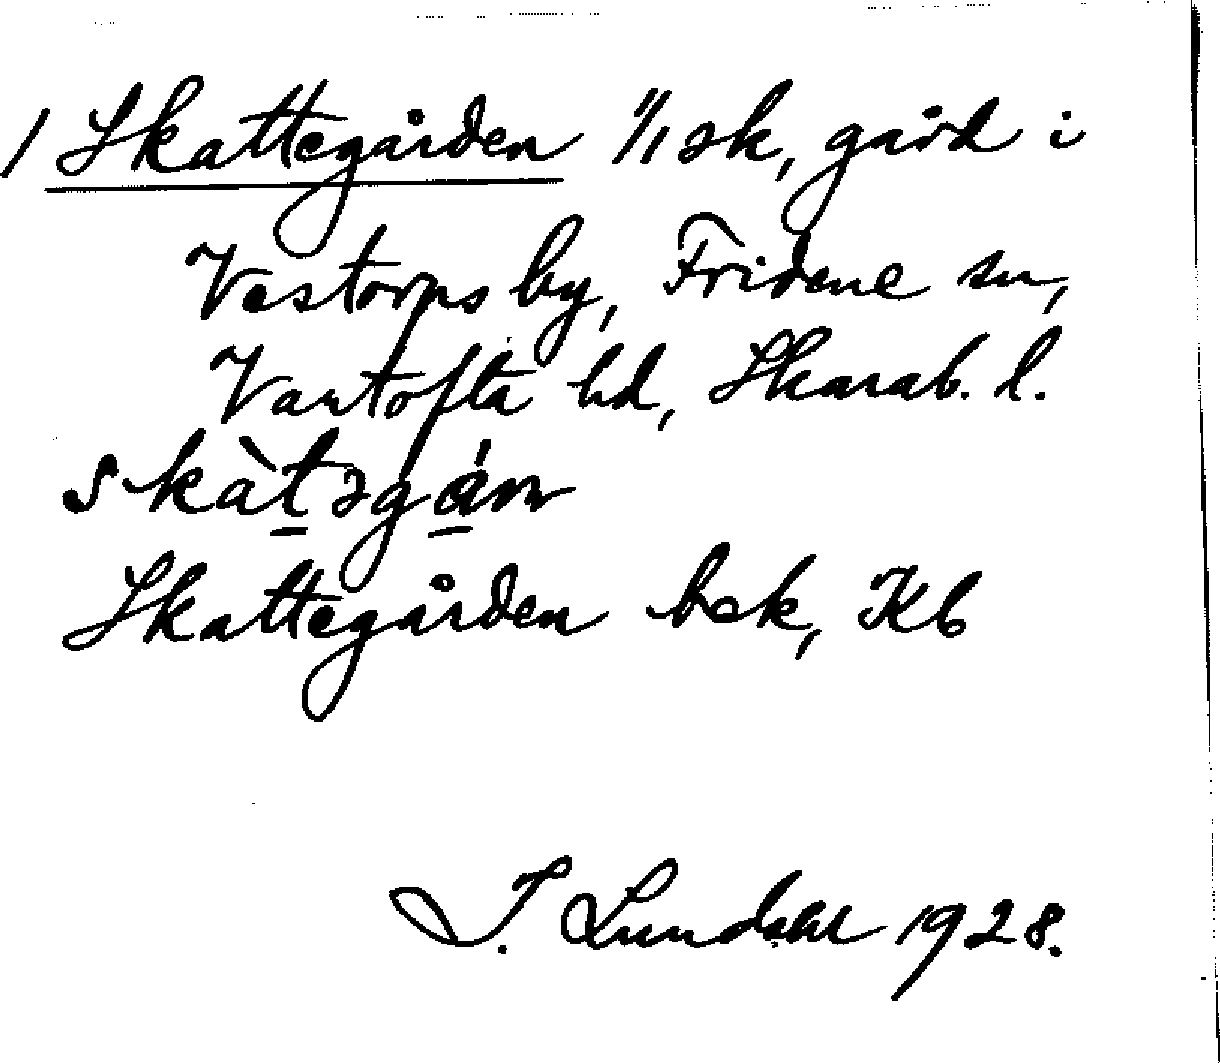 1 Skattegården 1/1 sk, gård i
Vestorps by, Fridene sn,
Vartofta hd, Skarab. l.
skàtəgán
Skattegården bek, Kb
I. Lundahl 1928.